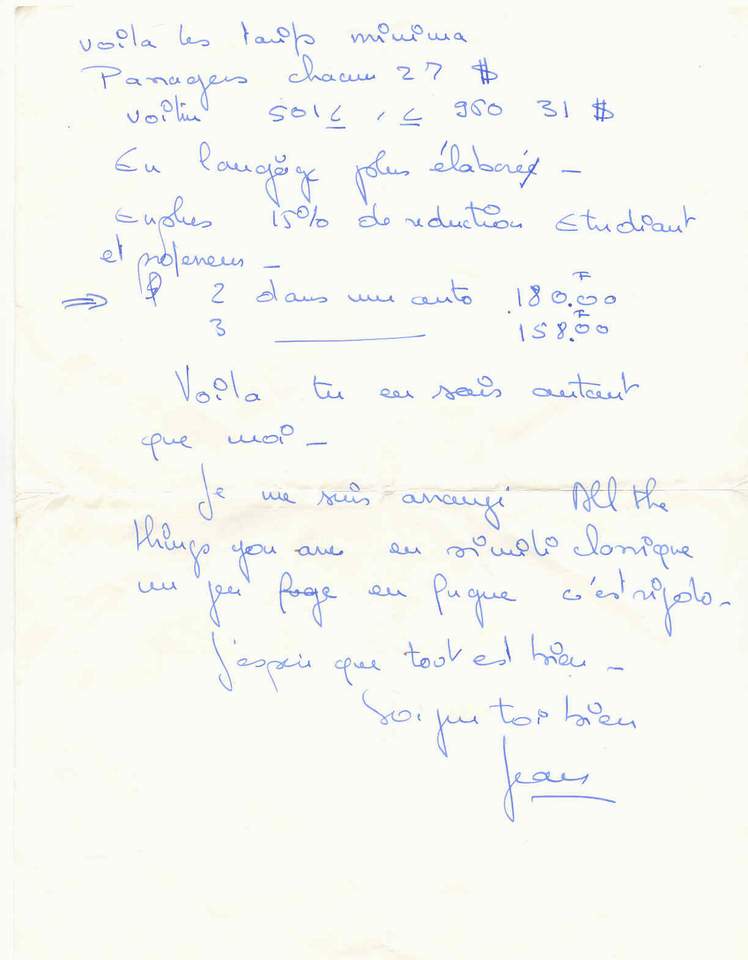 voila les tarifs minima
Passagers chacun 27 $
voiture 501 ≤ , ≤ 950 31 $
En langage plus élaboré –
En plus 15% de reduction Etudiant
et professeurs –
⇒ 2 dans une auto 180.00 F
3 ———— 158.00 F
Voila tu en sais autant
que moi –
Je me suis arrangé All the
things you are en simili classique
un peu en fugue c'est rigolo –
J'espère que tout est bien –
Soigne toi bien
Jean